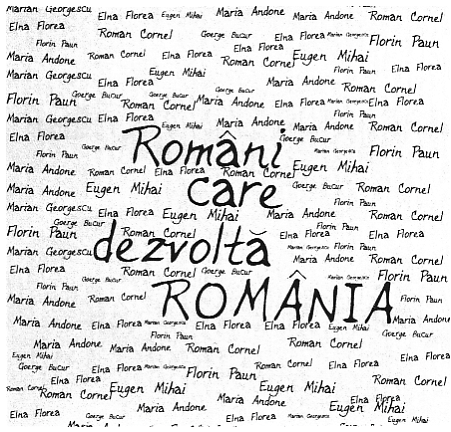 Marian Georgescu Elna Florea Eugen Mihai Maria Andone Roman Cornel Elna Florea
Florin Paun Roman Cornel Goerge Bucur Elna Florea Eugen Mihai Florin Paun
Maria Andone Elna Florea Roman Cornel Elna Florea Roman Cornel Eugen Mihai Elna Florea
Marian Georgescu Elna Florea Eugen Mihai Florin Paun Elna Florea
Florin Paun Goerge Bucur Roman Cornel Maria Andone Goerge Bucur Elna Florea Marian Georgescu Elna Florea
Marian Georgescu Elna Florea Eugen Mihai Maria Andone Roman Cornel
Elna Florea Goerge Bucur Români Goerge Bucur Elna Florea
Florin Paun Goerge Bucur Marian Georgescu Florin Paun
Maria Andone Roman Cornel Elna Florea Roman Cornel Eugen Mihai
Maria Andone Eugen Mihai care Goerge Bucur Roman Cornel
Marian Georgescu Elna Florea Eugen Mihai Maria Andone Roman Cornel
Florin Paun Goerge Bucur Roman Cornel Elna Florea Elna Florea
Marian Georgescu dezvoltă Marian Georgescu Florin Paun
Elna Florea Roman Cornel Goerge Bucur Maria Andone Roman Cornel
Goerge Bucur Marian Georgescu Florin Paun
Maria Andone Roman Cornel ROMÂNIA Florin Paun
Maria Andone Elna Florea Marian Georgescu Elna Florea Elna Florea Eugen Mihai Maria Andone
Maria Andone Roman Cornel Maria Andone Roman Cornel
Eugen Mihai Goerge Bucur Elna Florea Florin Paun Roman Cornel Florin Paun
Roman Cornel Roman Cornel Eugen Mihai Eugen Mihai Roman Cornel
Elna Florea Goerge Bucur Maria Andone Elna Florea Marian Georgescu Eugen Mihai Elna Florea